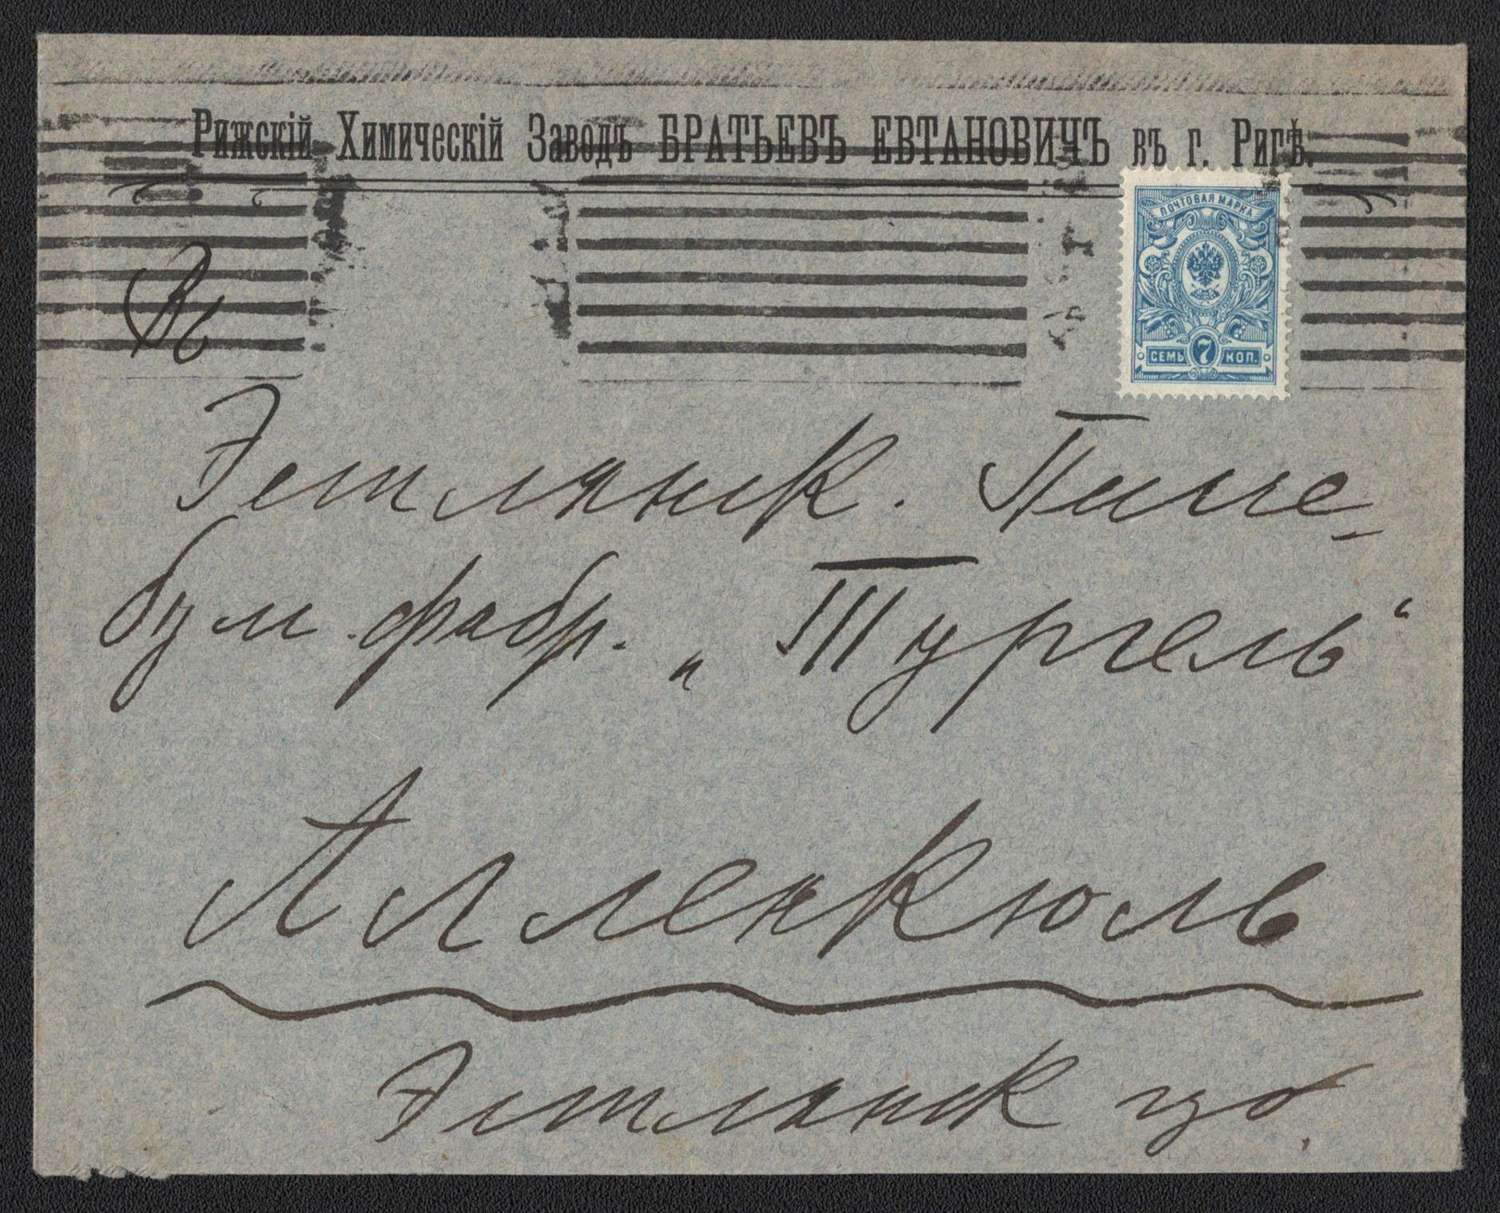 Рижскій Химическій Заводъ БРАТЬЕВЪ ЕВТАНОВИЧЪ въ г. Ригѣ.
ПОЧТОВАЯ МАРКА
СЕМЬ 7 КОП.
Въ
Эстлянск. Писче-
бум. фабр. „Тургель“
Алленкюль
Эстлянск губ.